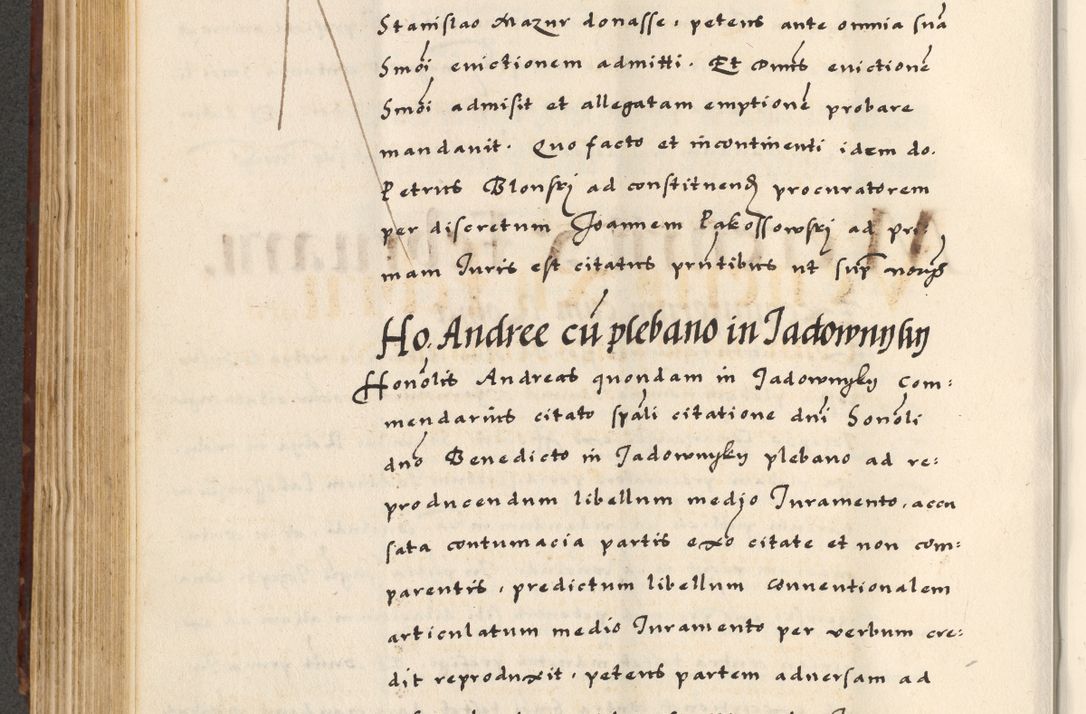 Stanislao Mazur donasse, petens ante omnia suā
Smōi evictionem admitti. Et Dnus evictionē
Smōi admisit et allegatam emptionē probare
mandavit. Quo facto et incontinenti idem do.
Petrus Blonski ad constituend procuratorem
per discretum Joannem Pakossowski ad pri
mam Juris est citatus prntibus ut sup
Ho. Andree cū plebano in Jadownyky
Honōlis Andreas quondam in Jadownyky com:
mendarius citato spāli citatione dni Honōli
dno Benedicto in Jadownyky plebano ad re:
producendum libellum medio Juramento, accu
sata contumacia partis ex⁰ citate et non com:
parentis, predictum libellum conventionalem
articulatum medio Juramento per verbum cre:
dit reproduxit, petens partem adversam ad